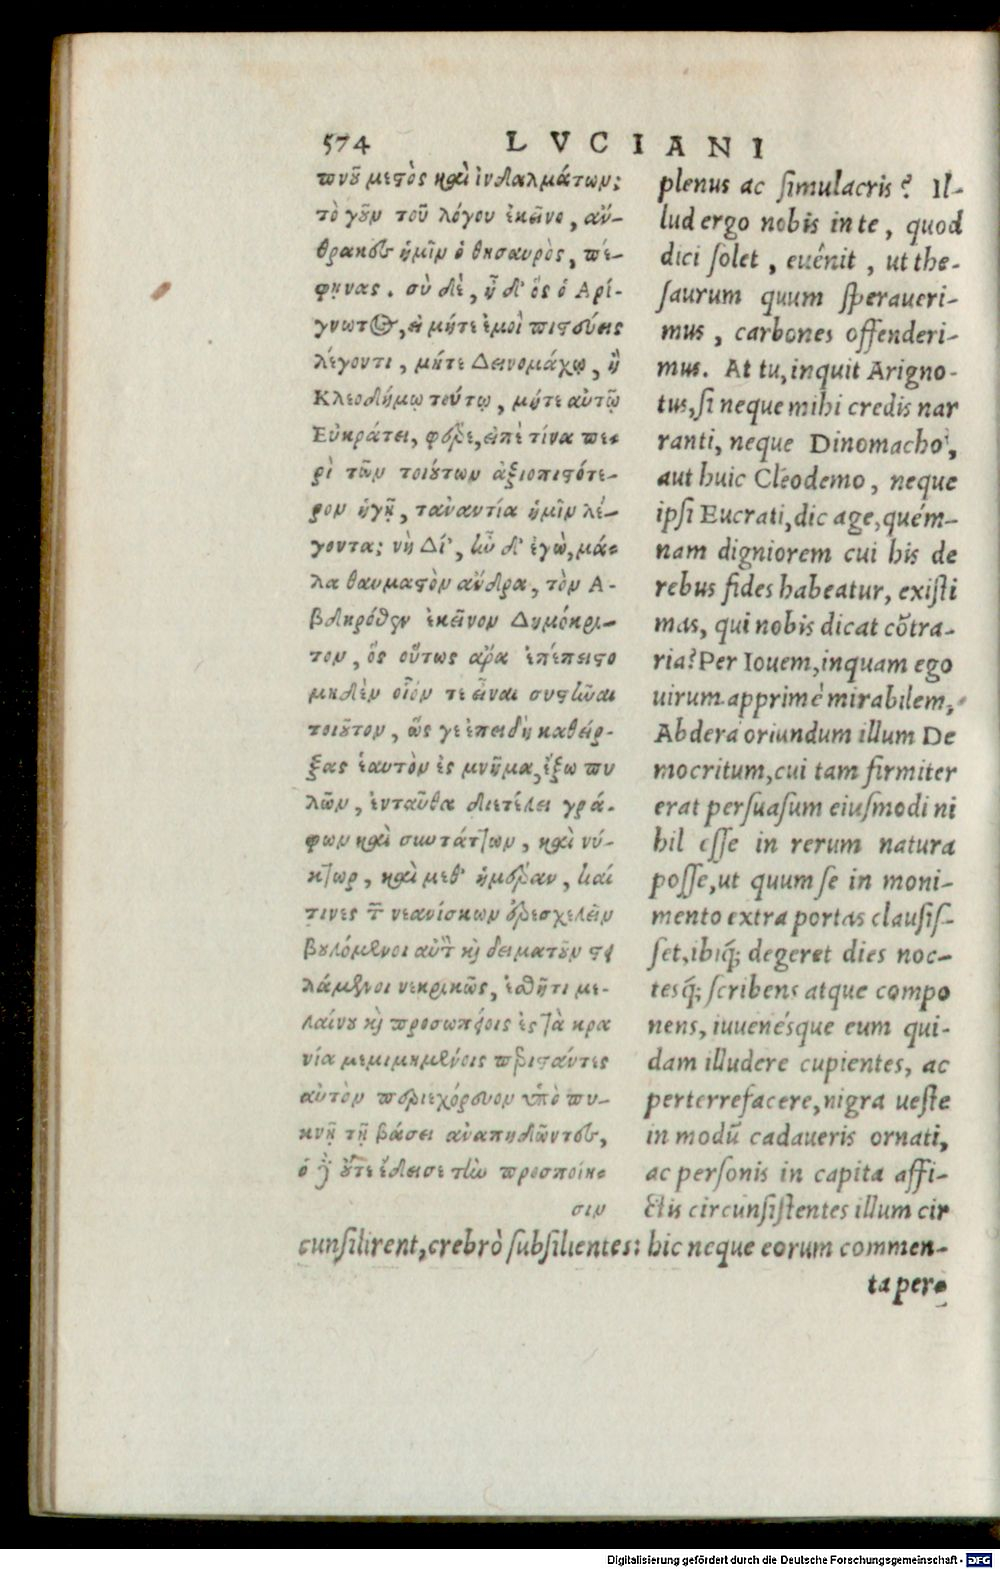 574 LVCIANI
πνοῦ μεστὸς καὶ ἰνδαλμάτων;
τὸ γοῦν τοῦ λόγου ἐκεῖνο, ἄν-
θρακες ἡμῖν ὁ θησαυρὸς, πέ-
φηνας. σὺ δὲ, ἦ δ' ὃς ὁ Ἀρί-
γνωτος, εἰ μήτε ἐμοὶ πιστεύεις
λέγοντι, μήτε Δεινομάχῳ, ἢ
Κλεοδήμῳ τούτῳ, μήτε αὐτῷ
Εὐκράτει, φέρε, εἰπὲ τίνα πε-
ρὶ τῶν τοιούτων ἀξιοπιστότε-
ρον ἡγῇ, τἀναντία ἡμῖν λέ-
γοντα; νὴ Δί', ἦν δ' ἐγὼ, μά-
λα θαυμαστὸν ἄνδρα, τὸν Ἀ-
βδηρόθεν ἐκεῖνον Δημόκρι-
τον, ὃς οὕτως ἄρα ἐπέπειστο
μηδὲν οἷόν τε εἶναι συστῆναι
τοιοῦτον, ὥς γε ἐπειδὴ καθείρ-
ξας ἑαυτὸν ἐς μνῆμα, ἔξω πυ
λῶν, ἐνταῦθα διετέλει γρά-
φων καὶ συντάττων, καὶ νύ-
κτωρ, καὶ μεθ' ἡμέραν, καί
τινες τῶν νεανίσκων ἐρεσχελεῖν
βουλόμενοι αὐτὸν καὶ δειματοῦν στει
λάμενοι νεκρικῶς, ἐσθῆτι με-
λαίνῃ καὶ προσωπείοις ἐς τὰ κρα
νία μεμιμημένοις περιστάντες
αὐτὸν περιεχόρευον ὑπὸ πυ-
κνῇ τῇ βάσει ἀναπηδῶντες,
ὁ δὲ οὔτε ἔδεισε τὴν προσποίη-
σιν
plenus ac simulacris? Il-
lud ergo nobis in te, quod
dici solet, euênit, ut the-
saurum quum speraueri-
mus, carbones offenderi-
mus. At tu, inquit Arigno-
tus, si neque mihi credis nar
ranti, neque Dinomacho,
aut huic Cleodemo, neque
ipsi Eucrati, dic age, quém-
nam digniorem cui his de
rebus fides habeatur, existi
mas, qui nobis dicat cõtra-
ria? Per Iouem, inquam ego
uirum apprimè mirabilem,
Abdera oriundum illum De
mocritum, cui tam firmiter
erat persuasum eiusmodi ni
hil esse in rerum natura
posse, ut quum se in moni-
mento extra portas clausis-
set, ibiq; degeret dies noc-
tesq; scribens atque compo
nens, iuuenésque eum qui-
dam illudere cupientes, ac
perterrefacere, nigra ueste
in modũ cadaueris ornati,
ac personis in capita affi-
ctis circunsistentes illum cir
cunsilirent, crebrò subsilientes: hic neque eorum commen-
ta per-
Digitalisierung gefördert durch die Deutsche Forschungsgemeinschaft - DFG